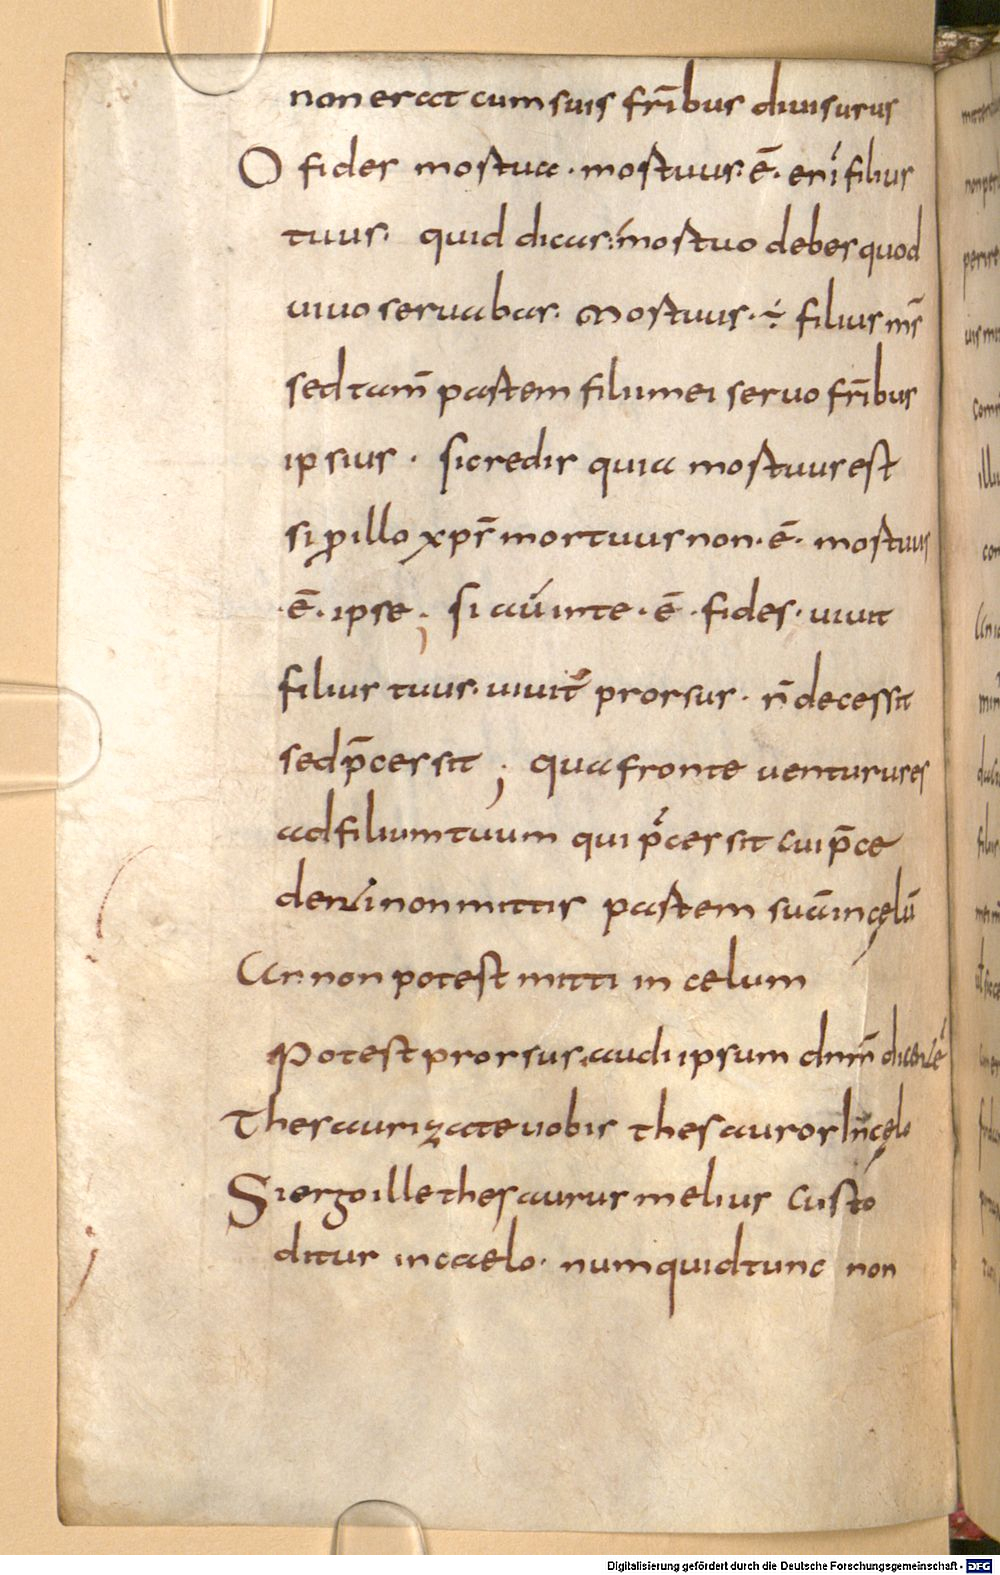 non erat cum suis fr̄ibus diuisurus
O fides mortua · mortuus · ē · eni filius
tuus · quid dicas : mortuo debes quod
uiuo seruabas · Mortuus · ÷ filius m̄s
sed tam̄ partem filii mei seruo fr̄ibus
ipsius · si credis quia mortuus est
si p illo xp̄s mortuus non · ē · mortuus
· ē · ipse ; si aū in te · ē · fides · uiuit
filius tuus · uiuit prorsus · n̄ decessit
sed p̄cessit ; qua fronte uenturus es
ad filium tuum qui p̄cessit cui p̄ce
denti non mittis partem suā in cęlū
An non potest mitti in celum
Potest prorsus, audi ipsum dn̄m dicentē
Thesaurizate uobis thesauros in cęlo
Si ergo ille thesaurus melius custo
ditur in caelo · numquid tunc non
Digitalisierung gefördert durch die Deutsche Forschungsgemeinschaft - DFG